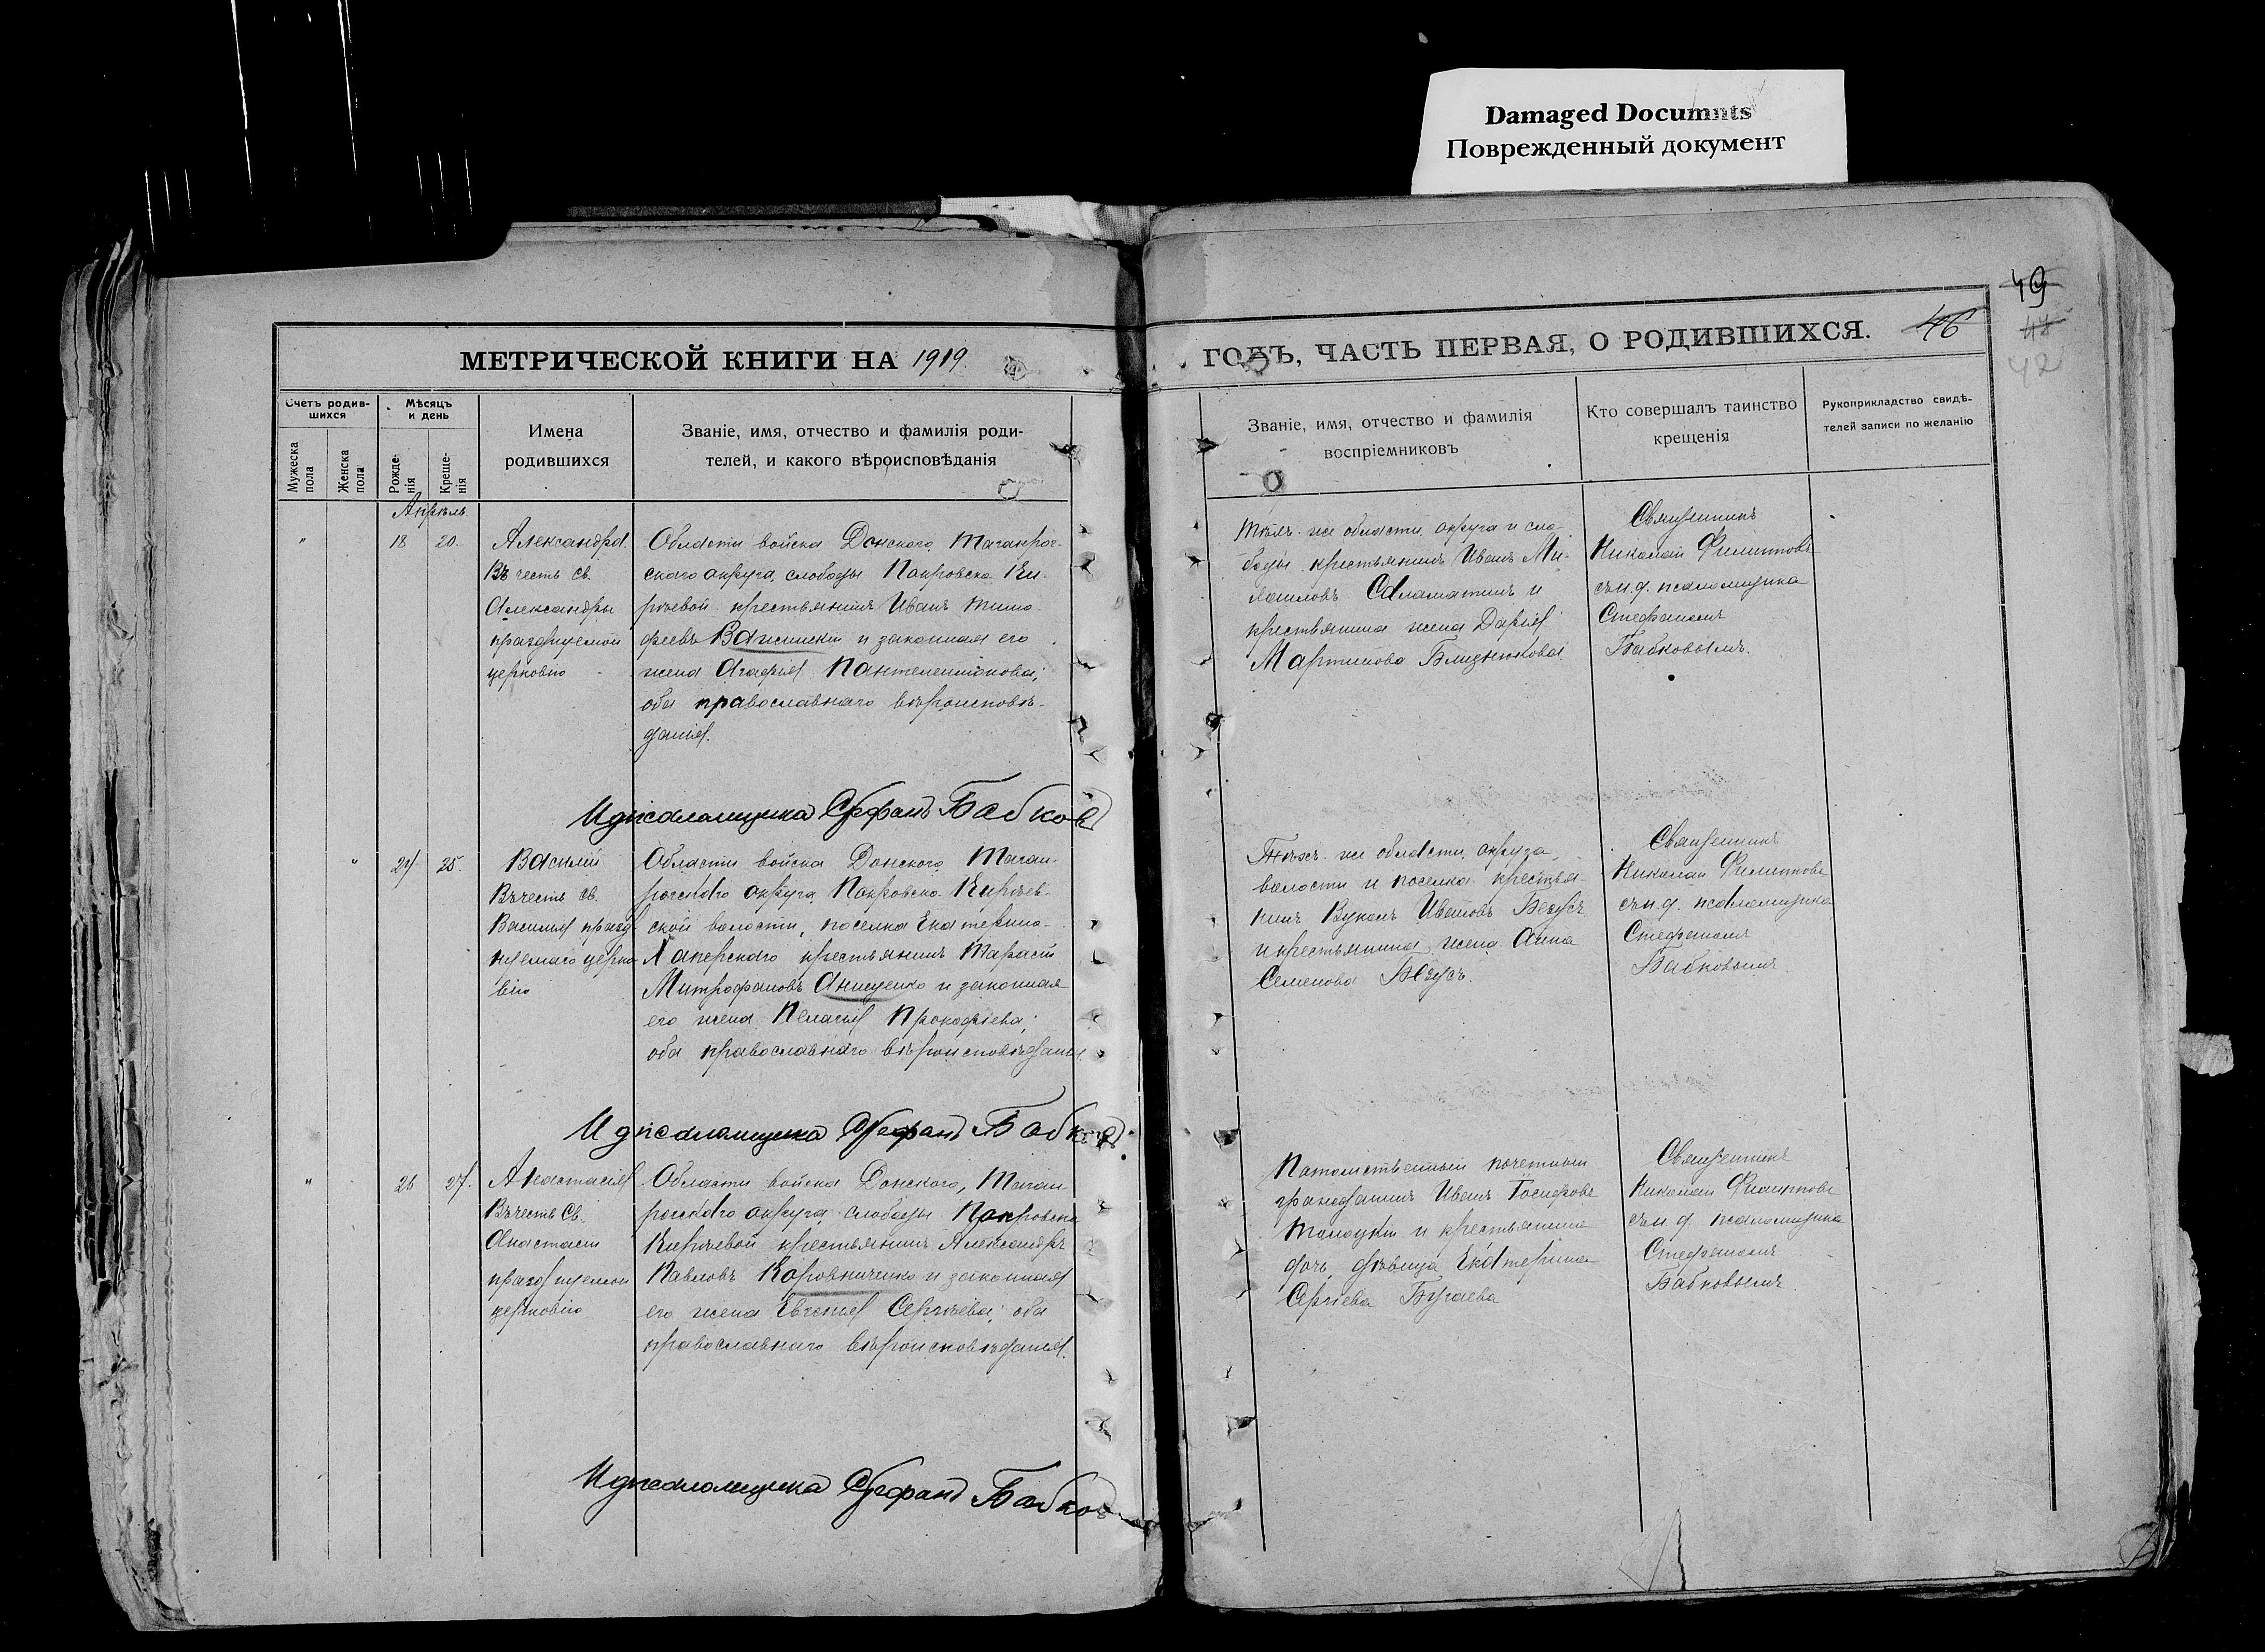 Damaged Documnts
Поврежденный документ
49
48
42
46
МЕТРИЧЕСКОЙ КНИГИ НА 1919
ГОДЪ, ЧАСТЬ ПЕРВАЯ, О РОДИВШИХСЯ.
Счетъ родив-
шихся
Мужеска
пола
Женска
пола
Мѣсяцъ
и день
Рожде-
нія
Креще-
нія
Имена
родившихся
Званіе, имя, отчество и фамилія роди-
телей, и какого вѣроисповѣданія
Званіе, имя, отчество и фамилія
воспріемниковъ
Кто совершалъ таинство
крещенія
Рукоприкладство свидѣ-
телей записи по желанію
Апрѣль
" 18 20.
Александра
Въ честь св.
Александры
празднуемой
церковію
Области войска Донского, Таганрог-
скаго округа, слободы Покровско-Ки-
рѣевой крестьянинъ Иванъ Тимо-
феевъ Важинскій и законная его
жена Агафія Пантелеимонова;
оба православнаго вѣроисповѣ-
данія.
Тѣхъ-же области, округа и сло-
боды крестьянинъ Иванъ Ми-
хаиловъ Саламатинъ и
крестьянина жена Дарія
Мартинова Близнюкова
Священникъ
Николай Филиповъ
съ и.д. псаломщика
Стефаномъ
Бабковымъ.
И д псаломщика Стефанъ Бабковъ
" 24 25.
Василій
Въ честь св.
Василія празд-
нуемаго церко-
вію
Области войска Донского, Таган-
рогскаго округа, Покровско-Кирѣев-
ской волости, поселка Екатерино-
Хаперскаго крестьянинъ Тарасій
Митрофановъ Анищенко и законная
его жена Пелагія Прокофіева;
оба православнаго вѣроисповѣданія.
Тѣхъ-же области, округа,
волости и поселка крестья-
нинъ Вуколъ Ивановъ Безусъ
и крестьянина жена Анна
Семенова Безусъ.
Священникъ
Николай Филиповъ
съ и.д. псаломщика
Стефаномъ
Бабковымъ
И д псаломщика Стефанъ Бабковъ
" 26 27.
Анастасія
Въ честь св.
Анастасіи
празднуемой
церковію
Области войска Донского, Таган-
рогскаго округа, слободы Покровско-
Кирѣевой крестьянинъ Александръ
Павловъ Коровниченко и законная
его жена Евгенія Сергѣева; оба
православнаго вѣроисповѣданія.
Потомственный почетный
гражданинъ Иванъ Іосифовъ
и крестьянина
дочь дѣвица Екатерина
Сергіева Бугаева
Священникъ
Николай Филиповъ
съ и д. псаломщика
Стефаномъ
Бабковымъ
И д псаломщика Стефанъ Бабковъ